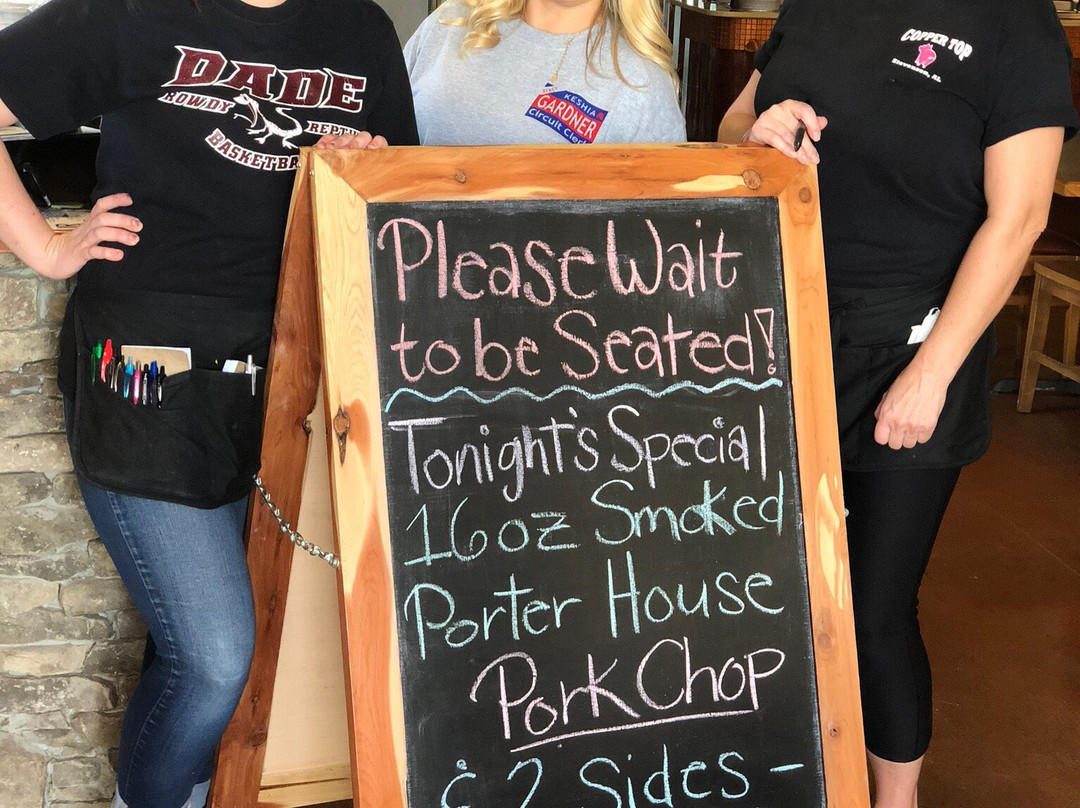 DADE
ROWDY REPTI
BASKETBA
KESHIA
GARDNER
Circuit Clerk
COPPER TOP
Stevenson, AL
Please Wait
to be Seated!
Tonight's Special
16oz Smoked
Porter House
Pork Chop
& 2 Sides -